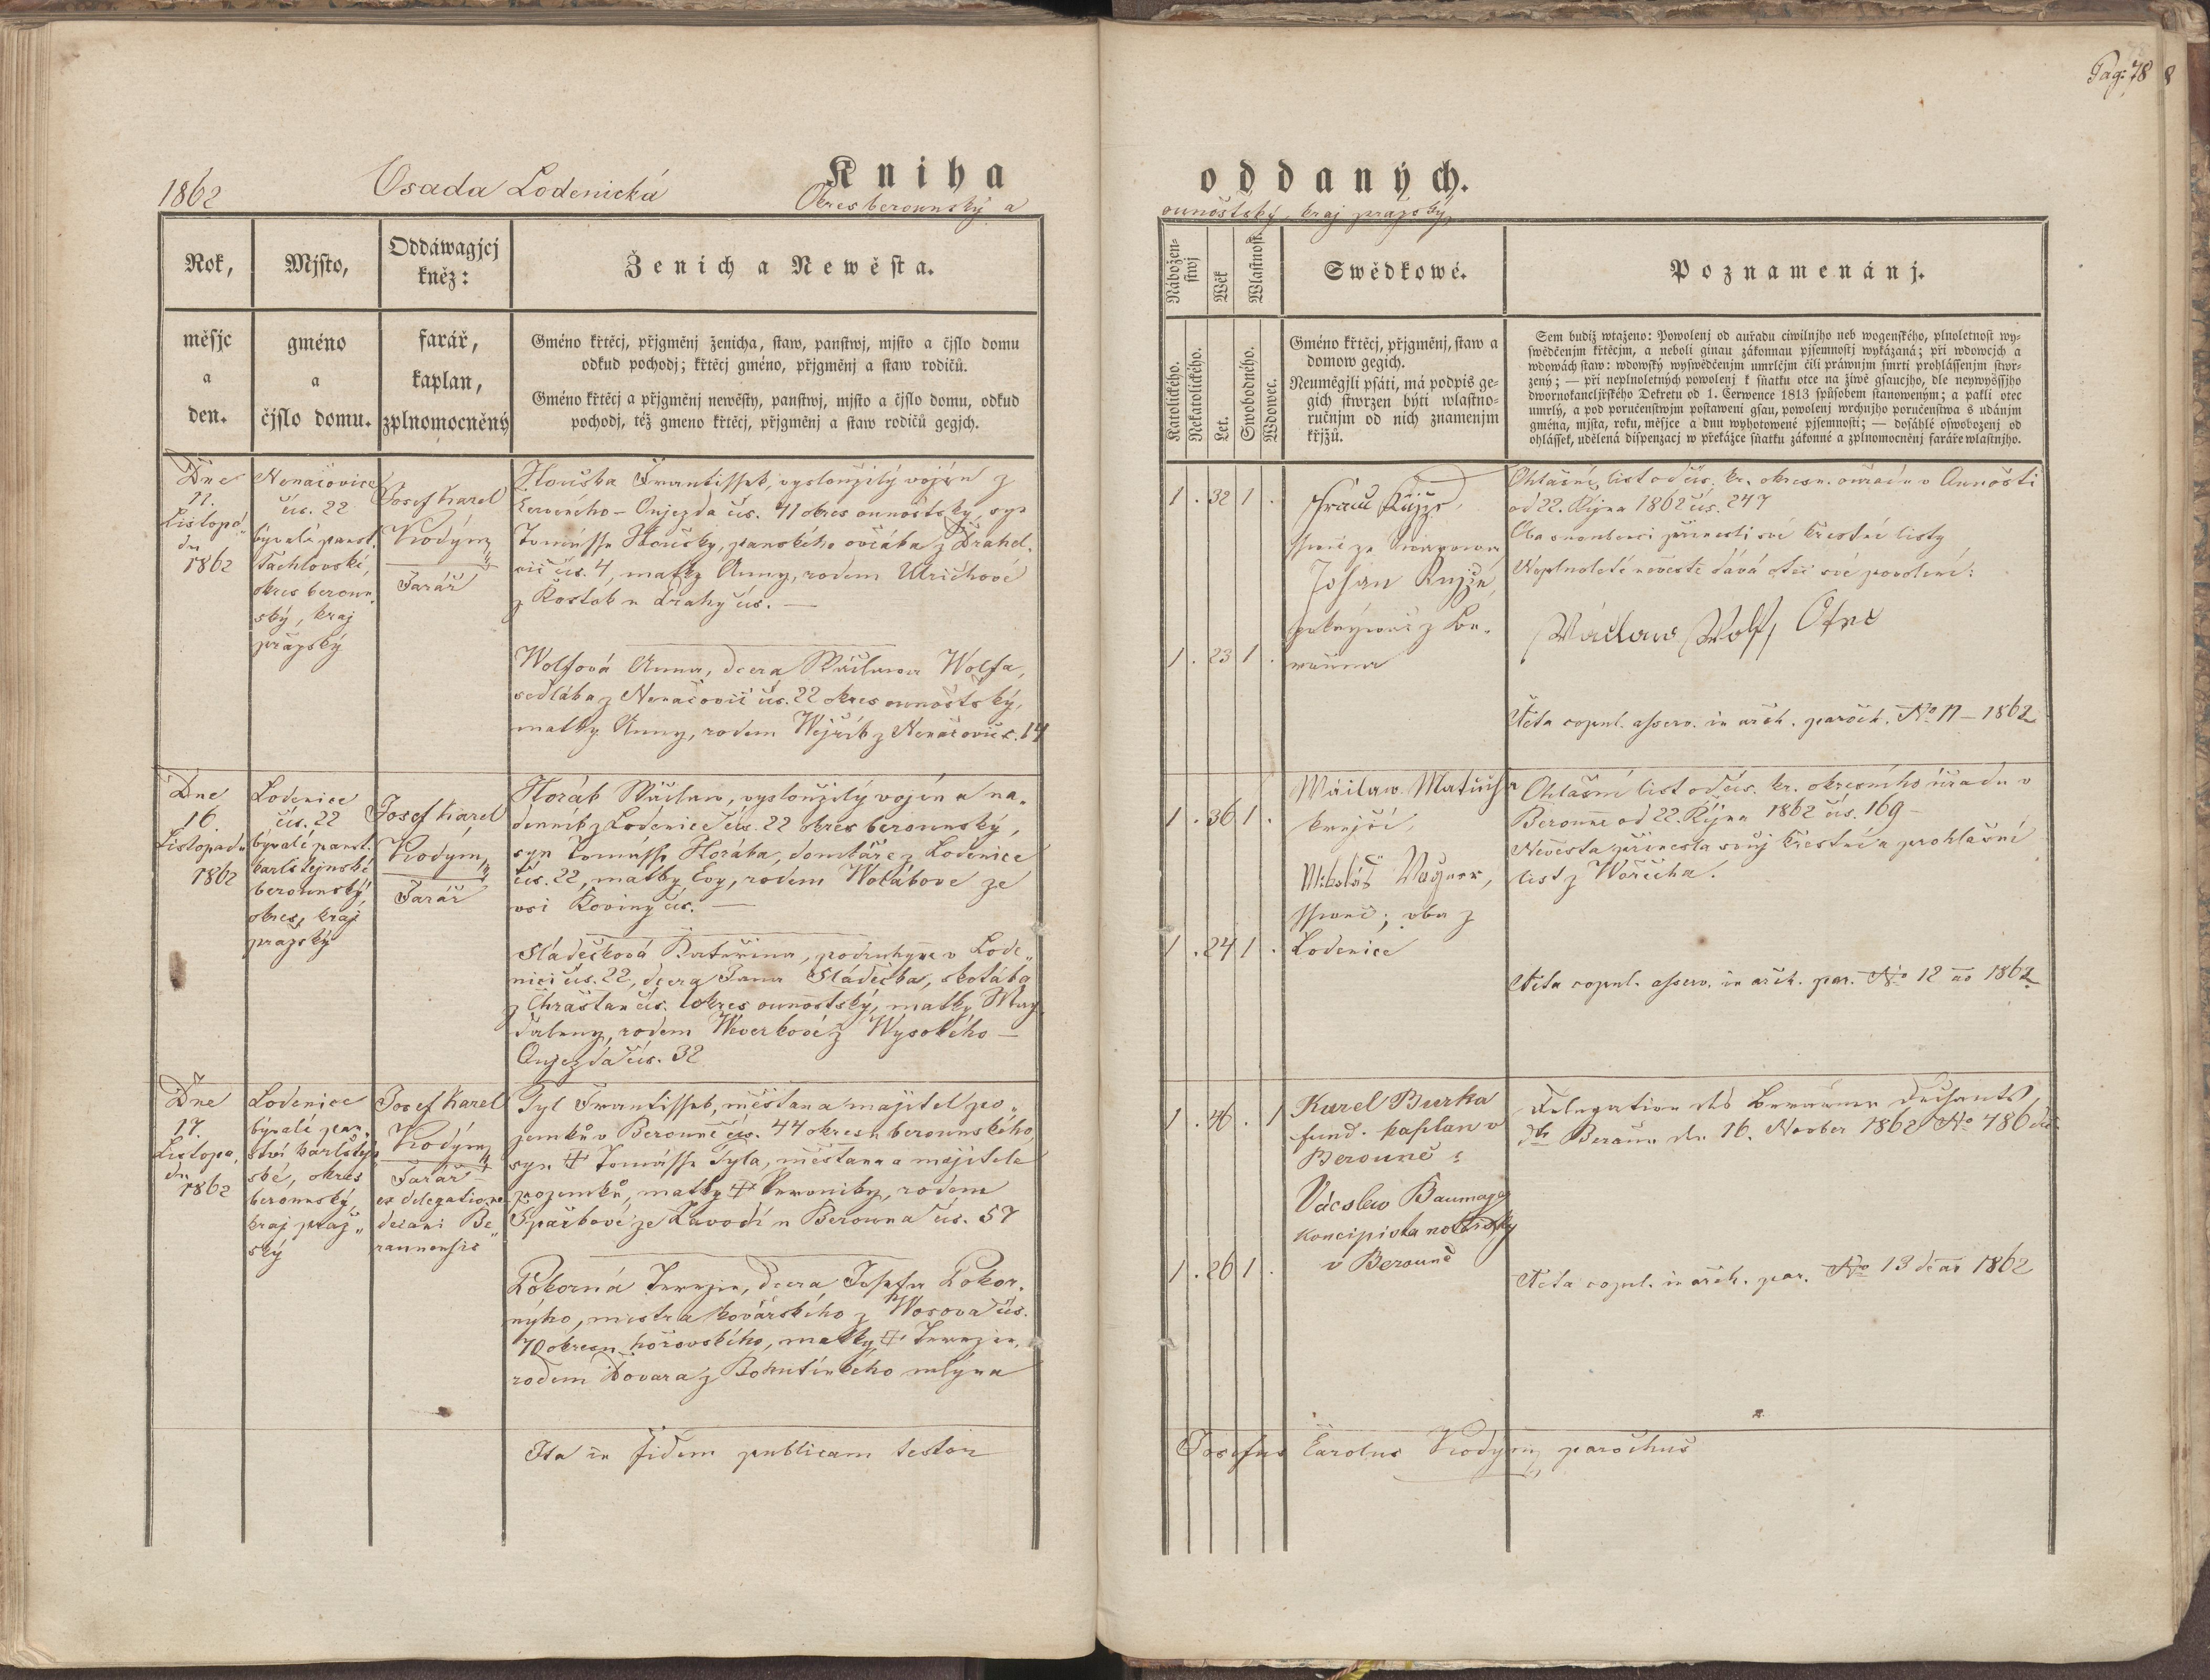 Pag: 78
8
1862
Osada Lodenická
Kniha
oddaných.
Okres berounský a
ounoštský, kraj pražský
Rok,
Mjsto,
Oddáwagjcj
kněz:
Ženich a Newěsta.
měsjc
a
den.
gméno
a
čjslo domu.
farář,
kaplan,
zplnomocněný
Gméno křtěcj, přjgměnj ženicha, staw, panstwj, mjsto a čjslo domu
odkud pochodj; křtěcj gméno, přjgměnj a staw rodičů.
Gméno křtěcj a přjgměnj newěsty, panstwj, mjsto a čjslo domu, odkud
pochodj, též gmeno křtěcj, přjgměnj a staw rodičů gegjch.
Náboženstwj
Wěk
Wlastnost.
Swědkowé.
Poznamenánj.
Katolického.
Nekatolického.
Let.
Swobodného.
Wdowec.
Gméno křtěcj, přjgměnj, staw a
domow gegich.
Neumėgjli psáti, má podpis ge-
gich stwrzen býti wlastno-
ručnjm od nich znamenjm
křjžů.
Sem budiž wtaženo: Powolenj od auřadu ciwilnjho neb wogenského, plnoletnost wy-
swědčenjm křtěcjm, a neboli ginau zákonnau pjsemnostj wykázaná; při wdowcjch a
wdowách staw: wdowský wyswědčenjm umrlčjm čili práwnjm smrti prohlássenjm stwr-
zený; — při neplnoletných powolenj k sňatku otce na žiwě gsaucjho, dle neywyšsjho
dwornokancljřského Dekretu od 1. Čerwence 1813 spůsobem stanoweným; a pakli otec
umrlý, a pod poručenstwjm postaweni gsau, powolenj wrchnjho poručenstwa s udánjm
gména, mjsta, roku, měsjce a dnu wyhotowené pjsemnosti; — dosáhlé oswobozenj od
ohlássek, udělená dispenzacj w překážce sňatku zákonné a zplnomocněnj faráře wlastnjho.
Dne
11.
Listopa-
du
1862
Nenačovice
čís. 22
bývalé panst.
Tachlovské,
okres beroun-
ský, kraj
pražský
Josef Karel
Kodým
Farář
Houška Frantissek, vysloužilý vojín z
Červeného-Oujezda čís. 41 okres ounoštský, syn
Tomásse Houšky, panského ovčáka z Drahel-
čic čís. 4, matky Anny, rodem Ulrichové
z Kostok u drahy čís. —
Wolfová Anna, dcera Wáclawa Wolfa,
sedláka z Nenačovic čís. 22 okres ounoštský,
matky Anny, rodem Wejřík z Nenačovic č. 14
1 . 32 1 .
1 . 23 1 .
Johan
z Be-
rauna
Ohlašní list od cís. kr. okresn. ouřadu v Aunošti
od 22. Října 1862 čís. 247
Oba snoubenci přinesli své křestné listy
Neplnoleté nevěstě dává otec své povolení:
Wáclaw Wolf, Otec
Acta copul. asserv. in arch. paroch. No 11 - 1862
Dne
16.
Listopadu
1862
Lodenice
čís. 22
bývalé panst.
karlštejnské
berounský
okres, kraj
pražský
Josef Karel
Kodým
Farář
Horák Wáclaw, vysloužilý vojín a ná-
denník z Lodenice čís. 22 okres berounský,
syn Tomásse Horáka, domkáře z Lodenice
čís. 22, matky Evy, rodem Wolákove ze
vsi Koviny čís. —
Sládečková Kateřina, podruhyne v Lode-
nici čís. 22, dcera Jana Sládečka, skotáka
z Chrášťan čís. 1 okres ounoštský, matky Mag-
daleny, rodem Weverkové z Wysokého-
Oujezda čís. 32
1 . 36 1 .
1 . 24 1 .
Wáclaw Matuch
krejčí,
Mikoláš Wagner,
oba z
Lodenice
Ohlašní list od cís. kr. okresního úřadu v
Berouně od 22. Října 1862 čís. 169 -
Nevěsta přinesla svůj křestní a prohlašní
list z Wořecha.
Acta copul. asserv. in arch. par. No 12 ao 1862
Dne
17.
Listopa-
du
1862
Lodenice
bývalé pan-
ství karlštej-
ské, okres
berounský,
kraj praž-
ský
Josef Karel
Kodým
Farář
ex delegatione
decani Be-
raunensis
Tyl Frantissek, měšťan a majitel po-
zemků v Berouně čís. 44 okresu berounského,
syn † Tomásse Tyla, měšťana a majitele
pozemků, matky † Veroniky, rodem
Špačkové ze Závodí u Berouna čís. 57
Pokorná Terezie, dcera Josefa Pokor-
ného, mistra kovářského z Wosova čís.
70 okresu hořovského, matky † Terezie,
rodem Kovara z Bohutínského mlýna
1 . 46 . 1
1 . 26 1 .
Karel Burka
fund. kaplan v
Berouně
Vácslav Baumage
koncipista notářský
v Berouně
Delegation des Berauner Dechants,
Beraun 16. November 1862 No 486
Acta copul. in arch. par. No 13 de ao 1862
Ita in fidem publicam testor
Josefus Carolus Kodym, parochus